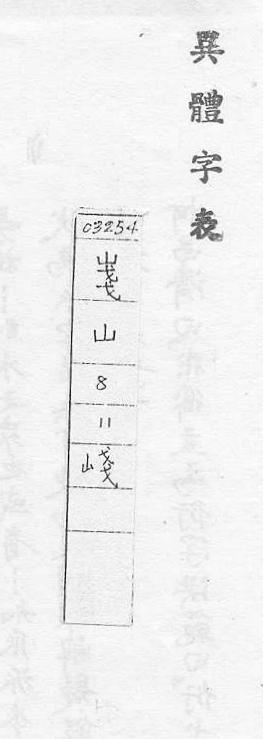 異體字表
03254
山
8
11
㟞